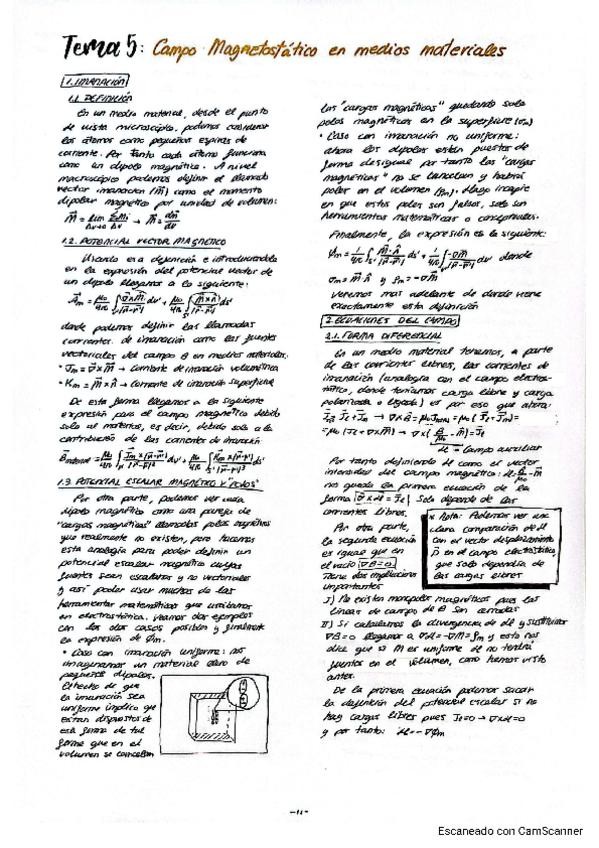 Tema 5: Campo Magnetostático en medios materiales
1. IMANACIÓN
1.1. DEFINICIÓN
En un medio material, desde el punto
de vista microscópico, podemos considerar
los átomos como pequeñas espiras de
corriente. Por tanto cada átomo funciona
como un dipolo magnético. A nivel
macroscópico podemos definir el llamado
vector imanación (M) como el momento
dipolar magnético por unidad de volumen:
1.2. POTENCIAL VECTOR MAGNÉTICO
Usando esa definición e introduciéndola
en la expresión del potencial vector de
un dipolo llegamos a lo siguiente:
donde podemos definir las llamadas
corrientes de imanación como las fuentes
vectoriales del campo B en medios materiales.
• Jm = ∇×M → corriente de imanación volumétrica
• Km = M×n → corriente de imanación superficial
De esta forma llegamos a la siguiente
expresión para el campo magnético debido
solo al material, es decir, debido solo a la
contribución de las corrientes de imanación
1.3 POTENCIAL ESCALAR MAGNÉTICO Y "POLOS"
Por otra parte, podemos ver cada
dipolo magnético como una pareja de
"cargas magnéticas" llamadas polos magnéticos
que realmente no existen, pero hacemos
esta analogía para poder definir un
potencial escalar magnético cuyas
fuentes sean escalares y no vectoriales
y así poder usar muchas de las
herramientas matemáticas que usábamos
en electrostática. Veamos dos ejemplos
con los dos casos posibles y finalmente
la expresión de φm.
• Caso con imanación uniforme: nos
imaginamos un material lleno de
pequeños dipolos.
El hecho de que
la imanación sea
uniforme implica que
están dispuestos de
esa forma de tal
forma que en el
volumen se cancelan
las "cargas magnéticas" quedando solo
polos magnéticos en la superficie (σm)
• Caso con imanación no uniforme:
ahora los dipolos están puestos de
forma desigual por tanto las "cargas
magnéticas" no se cancelan y habrá
polos en el volumen (ρm). Hago incapié
en que estos polos son falsos, solo son
herramientas matemáticas o conceptuales.
Finalmente, la expresión es la siguiente:
donde
σm = M·n y ρm = -∇M
veremos más adelante de donde viene
exactamente esta definición
2. ECUACIONES DEL CAMPO
2.1. FORMA DIFERENCIAL
En un medio material tenemos, a parte
de las corrientes libres, las corrientes de
imanación (analogía con el campo electros-
tático, donde teníamos carga libre y carga
polarizada o ligada) es por eso que ahora:
H = Campo auxiliar
Por tanto definiendo H como el vector
intensidad del campo magnético:
nos queda la primera ecuación de la
forma ∇×H = Jl. Solo depende de las
corrientes libres.
Por otra parte,
la segunda ecuación
es igual que en
el vacío ∇B=0
Tiene dos implicaciones
importantes
* Nota: Podemos ver una
clara comparación de H
con el vector desplazamiento
D en el campo electrostático,
que solo dependía de
las cargas libres
I) No existen monopolos magnéticos pues las
líneas de campo de B son cerradas
II) Si calculamos la divergencia de H y sustituimos
∇B=0 llegamos a ∇H=-∇M=ρm y esto nos
dice que si M es uniforme H no tendrá
fuentes en el volumen, como hemos visto
antes.
De la primera ecuación podemos sacar
la definición del potencial escalar si no
hay cargas libres pues Jl=0 → ∇×H=0
y por tanto: H=-∇φm
Escaneado con CamScanner